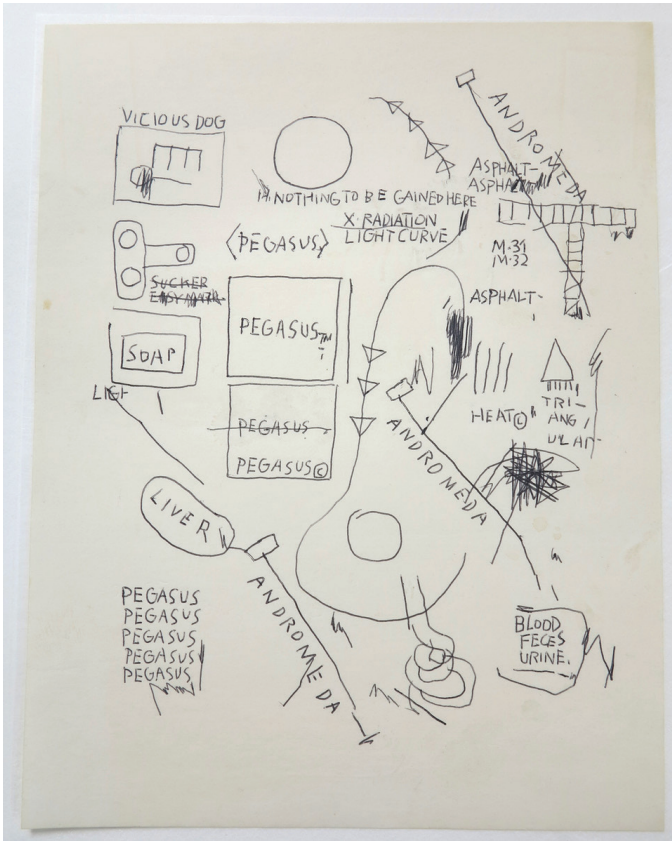 VICIOUS DOG
ANDROMEDA
ASPHALT-
ASPHALT
NOTHING TO BE GAINED HERE
X-RADIATION
LIGHT CURVE
<PEGASUS>
M.31
M.32
SUCKER
ASPHALT-
PEGASUS™
SOAP
TRI-
ANG
ULAR-
HEAT
PEGASUS
PEGASUS©
ANDROMEDA
LIVER
ANDROMEDA
PEGASUS
PEGASUS
PEGASUS
PEGASUS
PEGASUS
BLOOD
FECES
URINE.